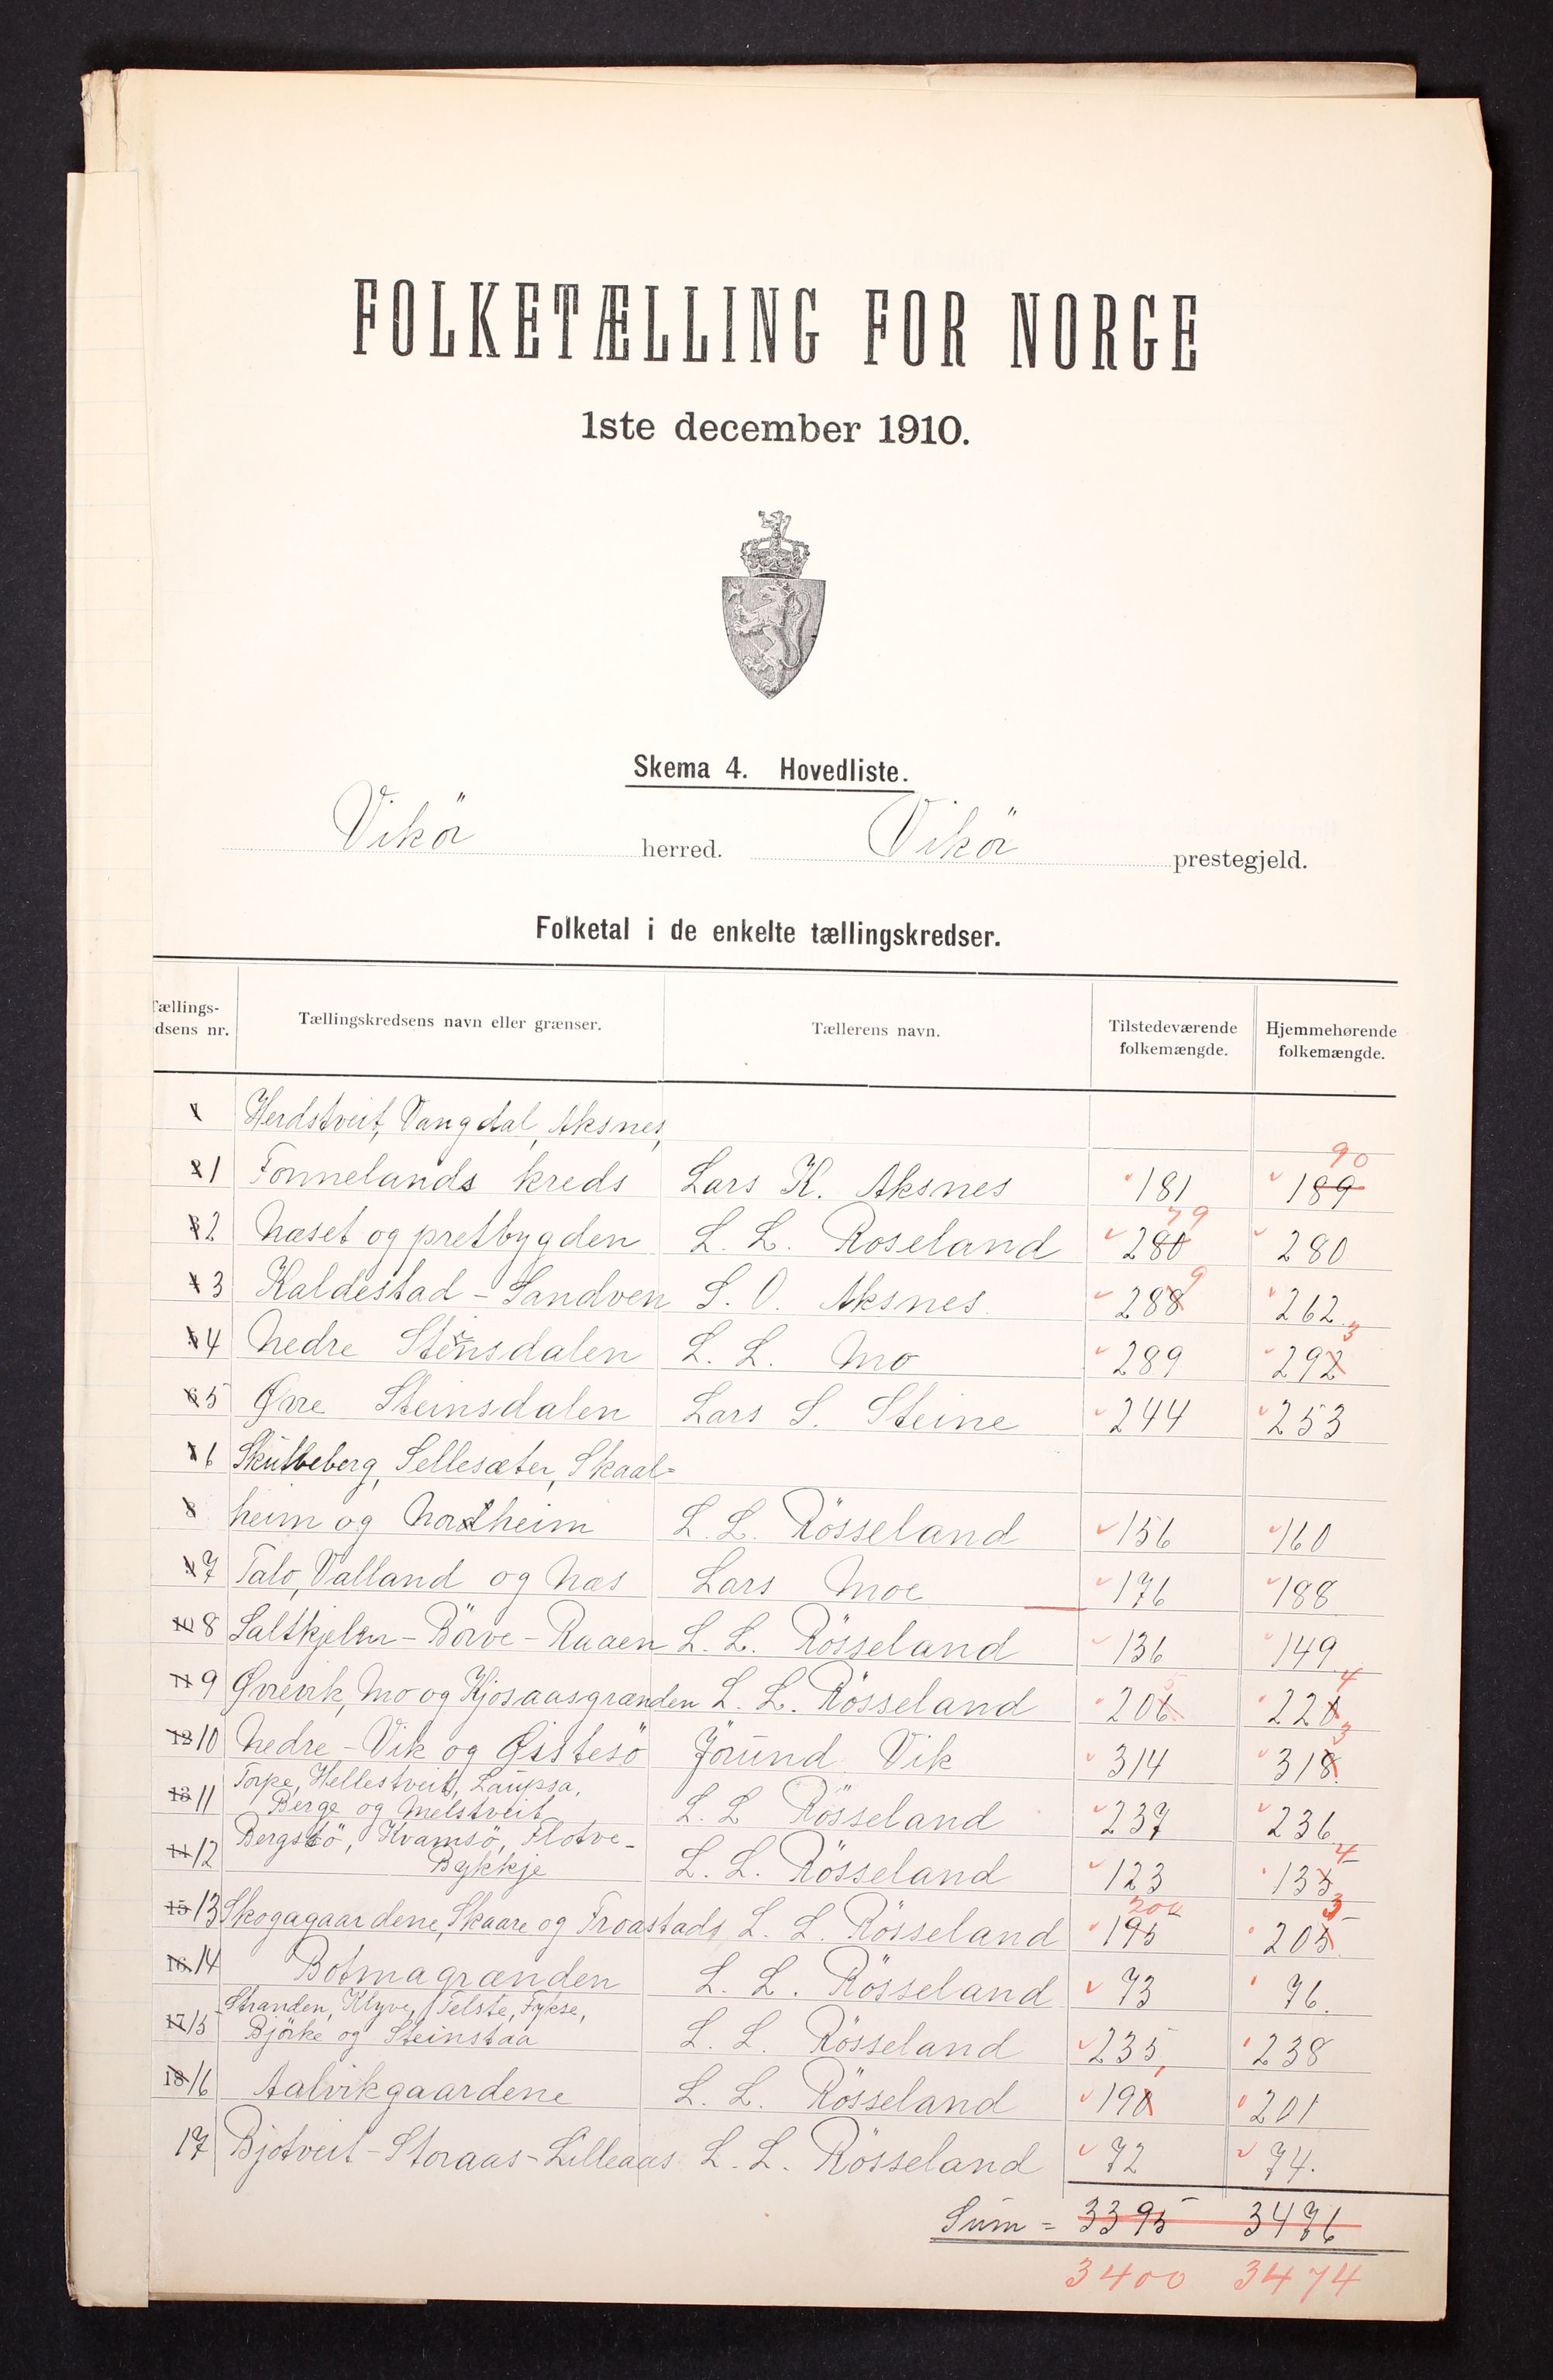 FOLKETÆLLING FOR NORGE
1ste december 1910.
Skema 4. Hovedliste.
Vikör herred. Vikör prestegjeld.
Folketal i de enkelte tællingskredser.
Tællings-
dsens nr. Tællingskredsens navn eller grænser. Tællerens navn. Tilstedeværende folkemængde. Hjemmehørende folkemængde.
1 Herdstveit, Vangdal, Aksnes,
90
2 1 Fonnelands kreds Lars K. Aksnes 181 189
79
3 2 Næset og prestbygden L. L. Roseland 280 280
9
4 3 Kaldestad - Sandven S. O. Aksnes. 288 262
3
5 4 Nedre Steinsdalen L. L. Mo 289 292
6 5 Øvre Steinsdalen Lars S. Steine 244 253
7 6 Skutleberg, Sellesæter, Skaal=
8 heim og Nordheim L. L. Rösseland 156 160
9 7 Talo, Valland og Næs Lars Moe 176 188
10 8 Saltkjelen - Börve - Raaen L. L. Rösseland 136 149
5 4
11 9 Øvrevik, Mo og Kjosaasgrænden L. L. Rösseland 206 228
3
12 10 Nedre - Vik og Östesö Jörund Vik 314 318
13 11 Torpe, Hellestveit, Laupsa,
Berge og Melstveit L. L Rösseland 237 236
4
14 12 Bergstö, Kvamsö, Flotve-
Bykkje L. L. Rösseland 123 135
200 3
15 13 Skogagaardene, Skaare og Troastads L. L. Rösseland 195 205
16 14 Botmagrænden L. L. Rösseland 73 76.
17 15 Stranden, Klyve, Telste, Fykse,
Björke og Steinstaa L. L. Rösseland 235 238
18 16 Aalvikgaardene L. L. Rösseland 190 201
17 Bjotveit - Storaas - Lilleaas L. L. Rösseland 72 74.
Sum = 3395 3476
3400 3474